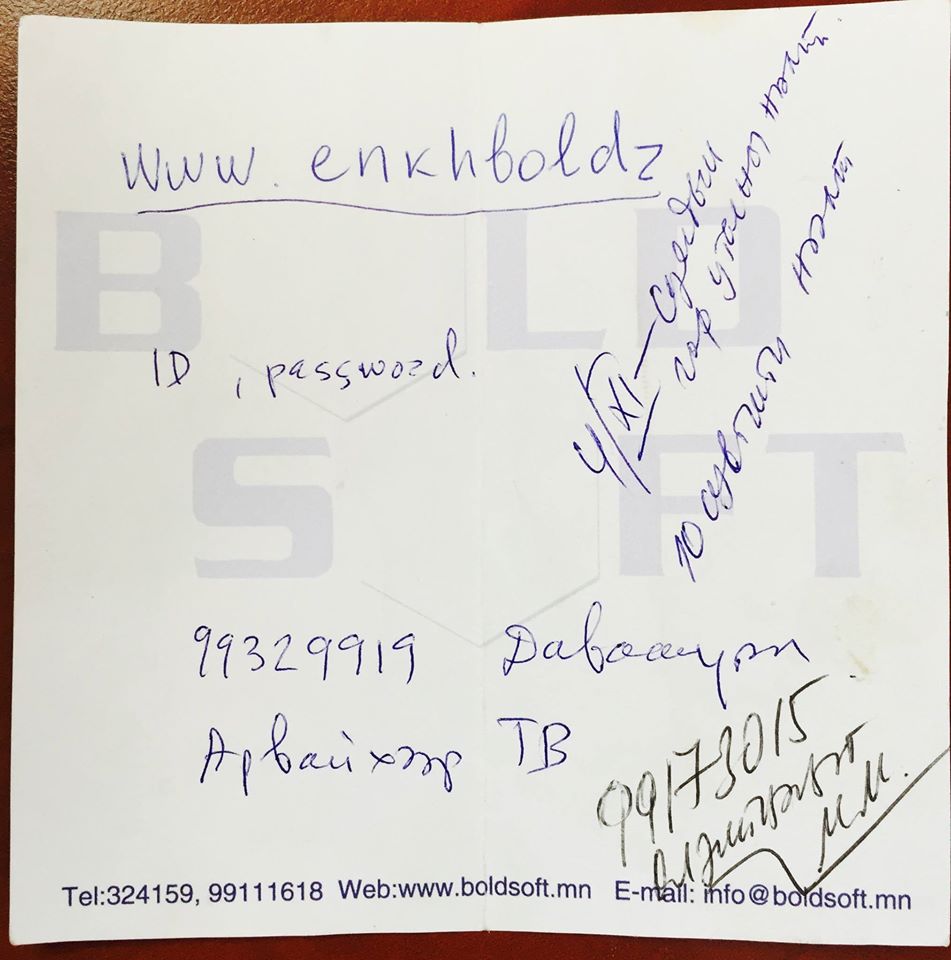 www.enkhboldz
BOLD
ID, password.
SOFT
4/XI – Сумдын
гар утасны нээлт.
10 нээлт
99329919 Даваасүрэн
Арвайхээр ТВ
99173015
М.М.
Tel:324159, 99111618 Web:www.boldsoft.mn E-mail: info@boldsoft.mn